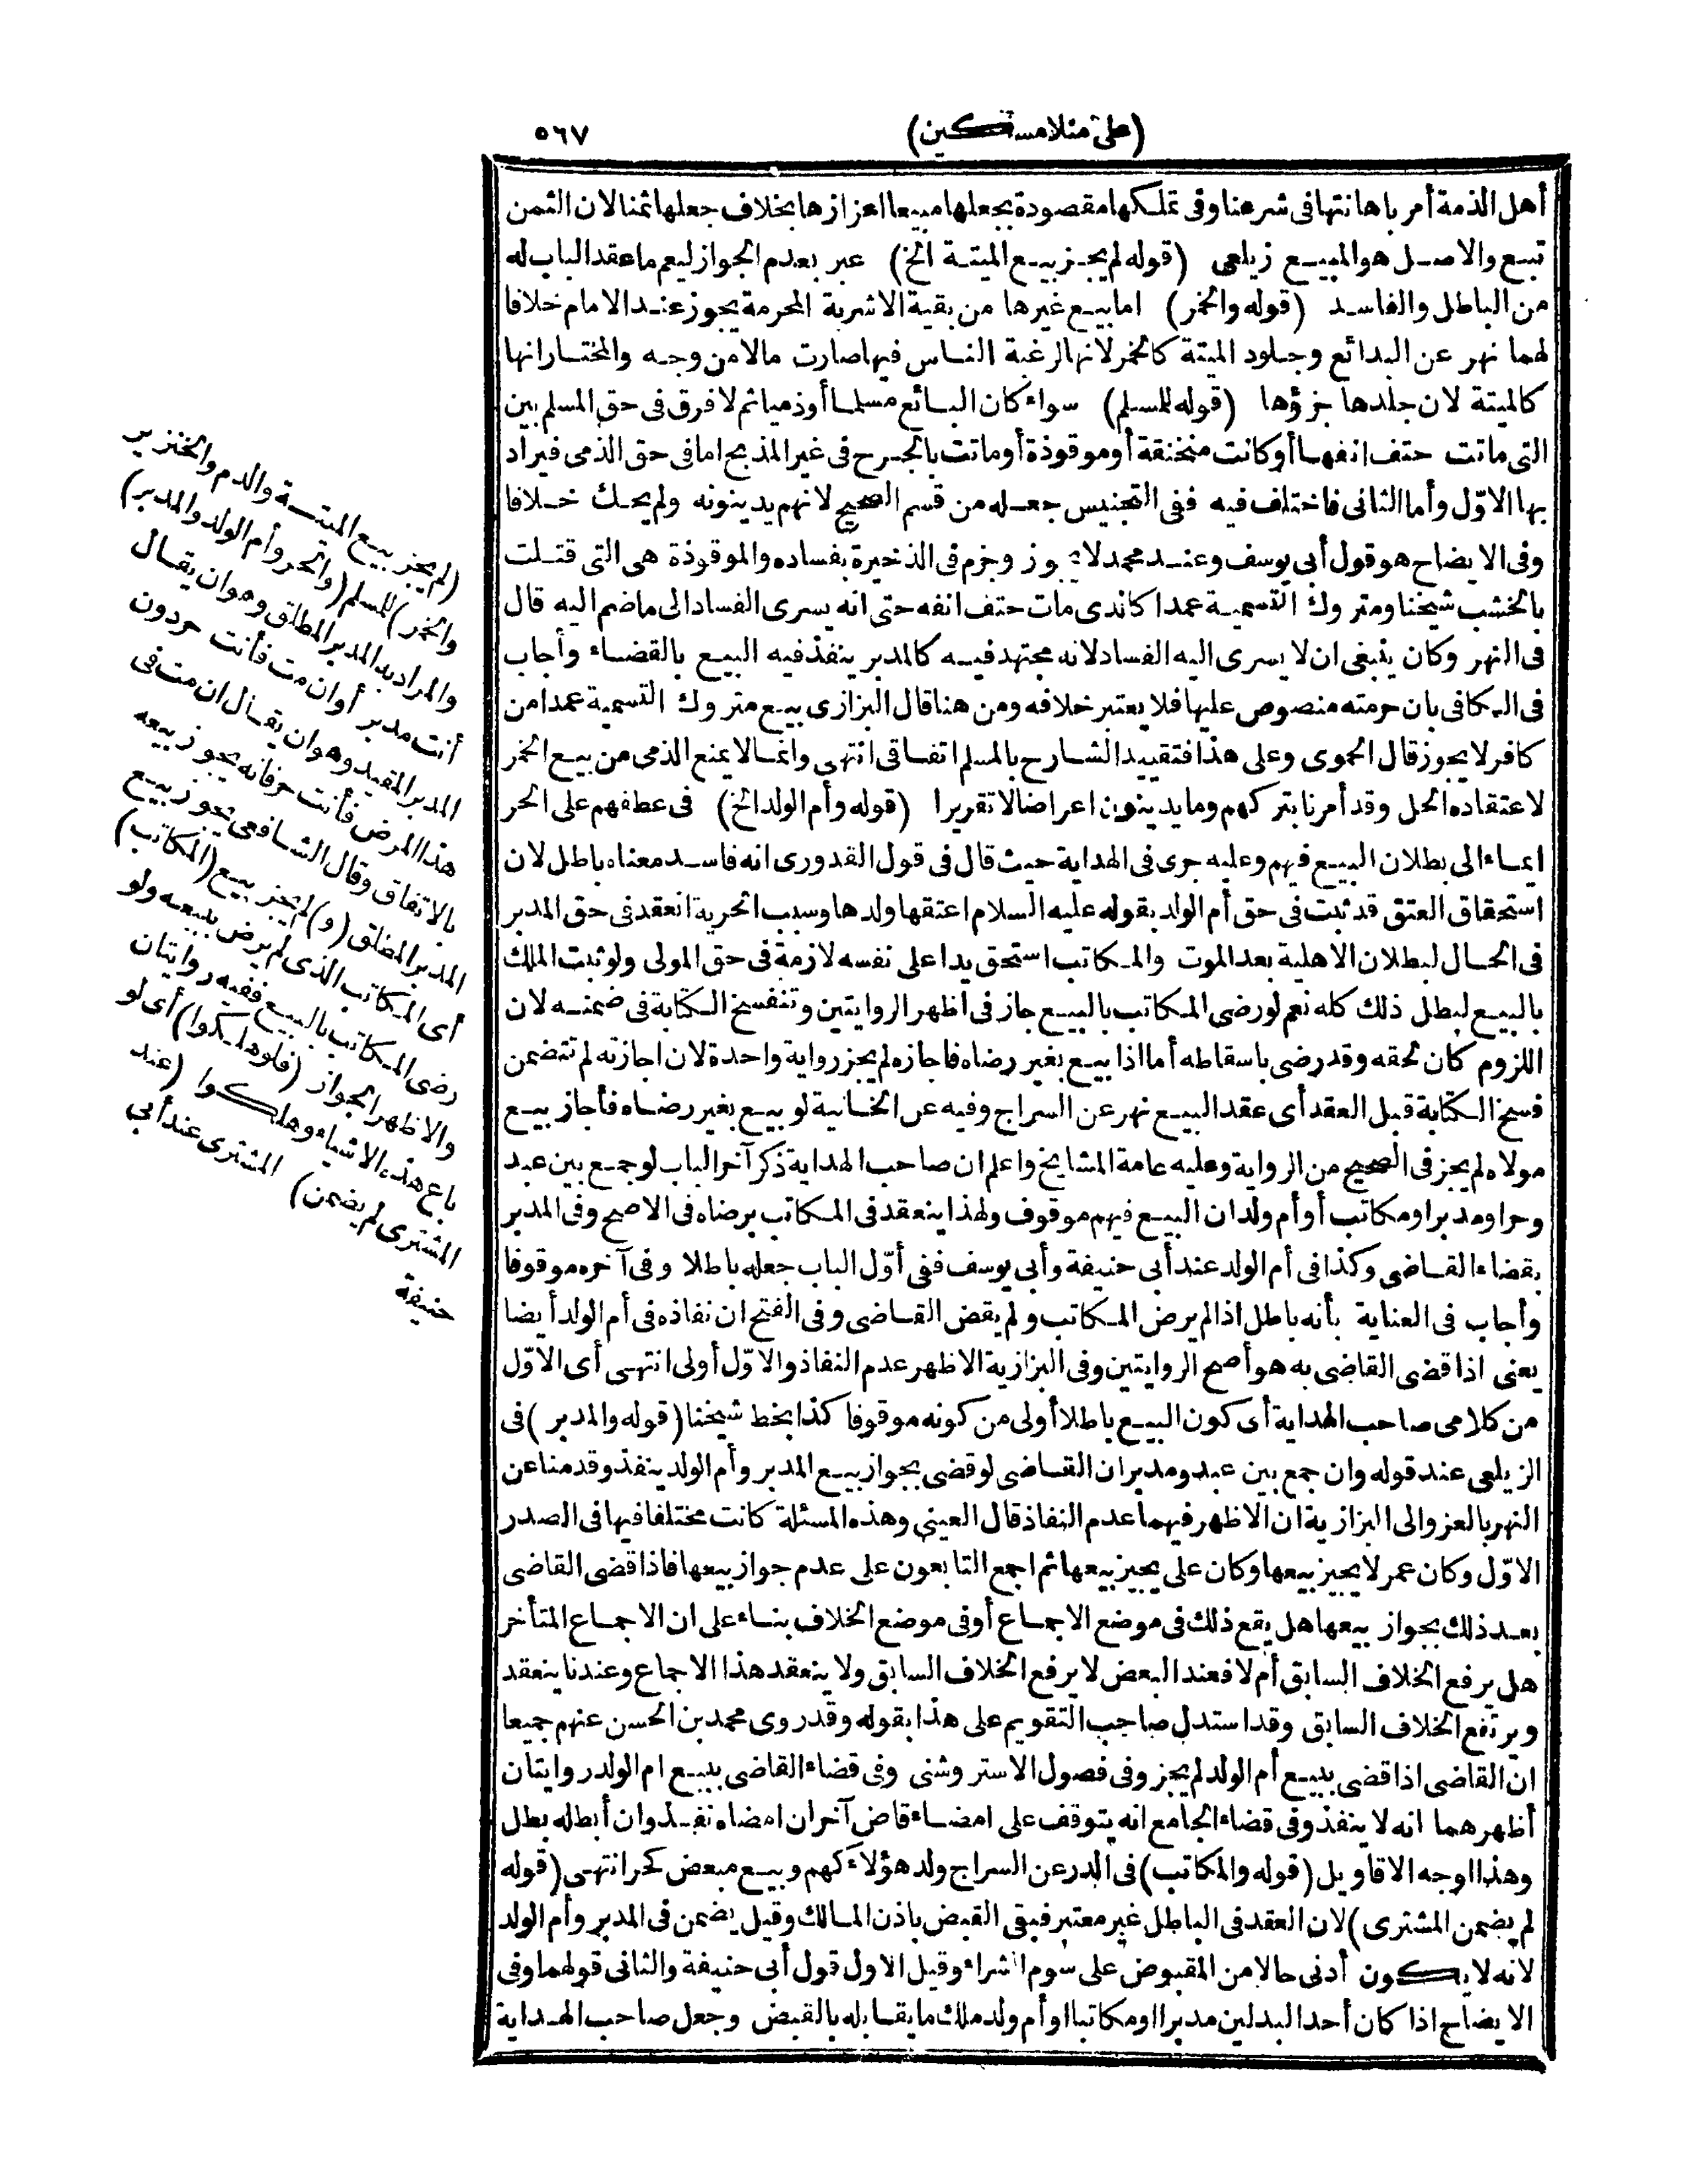 (على منلا مسكين) ٥٦٧
أهل الذمة أمر باهانتها فى شرعنا وفى تملكها مقصودة بجعلها مبيعا اعزازها بخلاف جعلها ثمنا لان الثمن
تبع والاصل هو المبيع زيلعى (قوله لم يجز بيع الميتة الخ) عبر بعدم الجواز ليعم ما عقد الباب له
من الباطل والفاسد (قوله والخمر) اما بيع غيرها من بقية الاشربة المحرمة يجوز عند الامام خلافا
لهما نهر عن البدائع وجلود الميتة كالخمر لانها لرغبة الناس فيها صارت مالا من وجه والمختار انها
كالميتة لان جلدها جزؤها (قوله للمسلم) سواء كان البائع مسلما أو ذميا ثم لا فرق فى حق المسلم بين
التى ماتت حتف انفها أو كانت منخنقة أو موقوذة أو ماتت بالجرح فى غير المذبح اما فى حق الذمى فيراد
بها الاوّل وأما الثانى فاختلف فيه ففى التجنيس جعله من قسم الصحيح لانهم يدينونه ولم يحك خلافا
وفى الايضاح هو قول أبى يوسف وعند محمد لا يجوز وجزم فى الذخيرة بفساده والموقوذة هى التى قتلت
بالخشب شيخنا ومتروك التسمية عمدا كالذى مات حتف انفه حتى انه يسرى الفساد الى ما ضم اليه قال
فى النهر وكان ينبغى ان لا يسرى اليه الفساد لانه مجتهد فيه كالمدبر ينفذ فيه البيع بالقضاء وأجاب
فى الكافى بان حرمته منصوص عليها فلا يعتبر خلافه ومن هنا قال البزازى بيع متروك التسمية عمدا من
كافر لا يجوز قال الحموى وعلى هذا فتقييد الشارح بالمسلم اتفاقى انتهى وانما لا يمنع الذمى من بيع الخمر
لاعتقاده الحل وقد أمرنا بتركهم وما يدينون اعراضا لا تقريرا (قوله وأم الولد الخ) فى عطفهم على الحر
ايماء الى بطلان البيع فيهم وعليه جرى فى الهداية حيث قال فى قول القدورى انه فاسد معناه باطل لان
استحقاق العتق قد ثبت فى حق أم الولد بقوله عليه السلام اعتقها ولدها وسبب الحرية انعقد فى حق المدبر
فى الحال لبطلان الاهلية بعد الموت والمكاتب استحق يدا على نفسه لازمة فى حق المولى ولو ثبت الملك
بالبيع لبطل ذلك كله نعم لو رضى المكاتب بالبيع جاز فى اظهر الروايتين وتنفسخ الكتابة فى ضمنه لان
اللزوم كان لحقه وقد رضى باسقاطه أما اذا بيع بغير رضاه فاجازه لم يجز رواية واحدة لان اجازته لم تتضمن
فسخ الكتابة قبل العقد أى عقد البيع نهر عن السراج وفيه عن الخانية لو بيع بغير رضاه فأجاز بيع
مولاه لم يجز فى الصحيح من الرواية وعليه عامة المشايخ واعلم ان صاحب الهداية ذكر آخر الباب لو جمع بين عبد
وحر او مدبر او مكاتب أو أم ولد ان البيع فيهم موقوف ولهذا ينعقد فى المكاتب برضاه فى الاصح وفى المدبر
بقضاء القاضى وكذا فى أم الولد عند أبى حنيفة وأبى يوسف ففى أوّل الباب جعله باطلا وفى آخره موقوفا
وأجاب فى العناية بأنه باطل اذا لم يرض المكاتب ولم يقض القاضى وفى الفتح ان نفاذه فى أم الولد أيضا
يعنى اذا قضى القاضى به هو أصح الروايتين وفى البزازية الاظهر عدم النفاذ والاوّل أولى انتهى أى الاوّل
من كلامى صاحب الهداية أى كون البيع باطلا أولى من كونه موقوفا كذا بخط شيخنا (قوله والمدبر) فى
الزيلعى عند قوله وان جمع بين عبد ومدبر ان القاضى لو قضى بجواز بيع المدبر وأم الولد ينفذ وقدمنا عن
النهر بالعزو الى البزازية ان الاظهر فيهما عدم النفاذ قال العينى وهذه المسئلة كانت مختلفا فيها فى الصدر
الاوّل وكان عمر لا يجيز بيعها وكان على يجيز بيعها ثم اجمع التابعون على عدم جواز بيعها فاذا قضى القاضى
بعد ذلك بجواز بيعها هل يقع ذلك فى موضع الاجماع أو فى موضع الخلاف بناء على ان الاجماع المتأخر
هل يرفع الخلاف السابق أم لا فعند البعض لا يرفع الخلاف السابق ولا ينعقد هذا الاجماع وعندنا ينعقد
ويرتفع الخلاف السابق وقد استدل صاحب التقويم على هذا بقوله وقد روى محمد بن الحسن عنهم جميعا
ان القاضى اذا قضى ببيع أم الولد لم يجز وفى فصول الاستروشنى وفى قضاء القاضى ببيع ام الولد روايتان
أظهرهما انه لا ينفذ وفى قضاء الجامع انه يتوقف على امضاء قاض آخر ان امضاه نفذ وان أبطله بطل
وهذا اوجه الاقاويل (قوله والمكاتب) فى الدر عن السراج ولد هؤلاء كهم وبيع مبعض كحر انتهى (قوله
لم يضمن المشترى) لان العقد فى الباطل غير معتبر فبقى القبض باذن المالك وقيل يضمن فى المدبر وأم الولد
لانه لا يكون أدنى حالا من المقبوض على سوم الشراء وقيل الاول قول أبى حنيفة والثانى قولهما وفى
الايضاح اذا كان أحد البدلين مدبرا او مكاتبا او أم ولد ملك ما يقابله بالقبض وجعل صاحب الهداية
(لم يجز بيع الميتة والدم والخنزير
والخمر) للمسلم (والحر وأم الولد والمدبر)
والمراد به المدبر المطلق وهو ان يقال
أنت مدبر أو ان مت فأنت حر دون
المدبر المقيد وهو ان يقال ان مت فى
هذا المرض فأنت حر فانه يجوز بيعه
بالاتفاق وقال الشافعى يجوز بيع
المدبر المطلق (و) لم يجز بيع (المكاتب)
أى المكاتب الذى لم يرض ببيعه ولو
رضى المكاتب بالبيع ففيه روايتان
والاظهر الجواز (فلو هلكوا) أى لو
باع هذه الاشياء وهلكوا (عند
المشترى لم يضمن) المشترى عند أبى
حنيفة